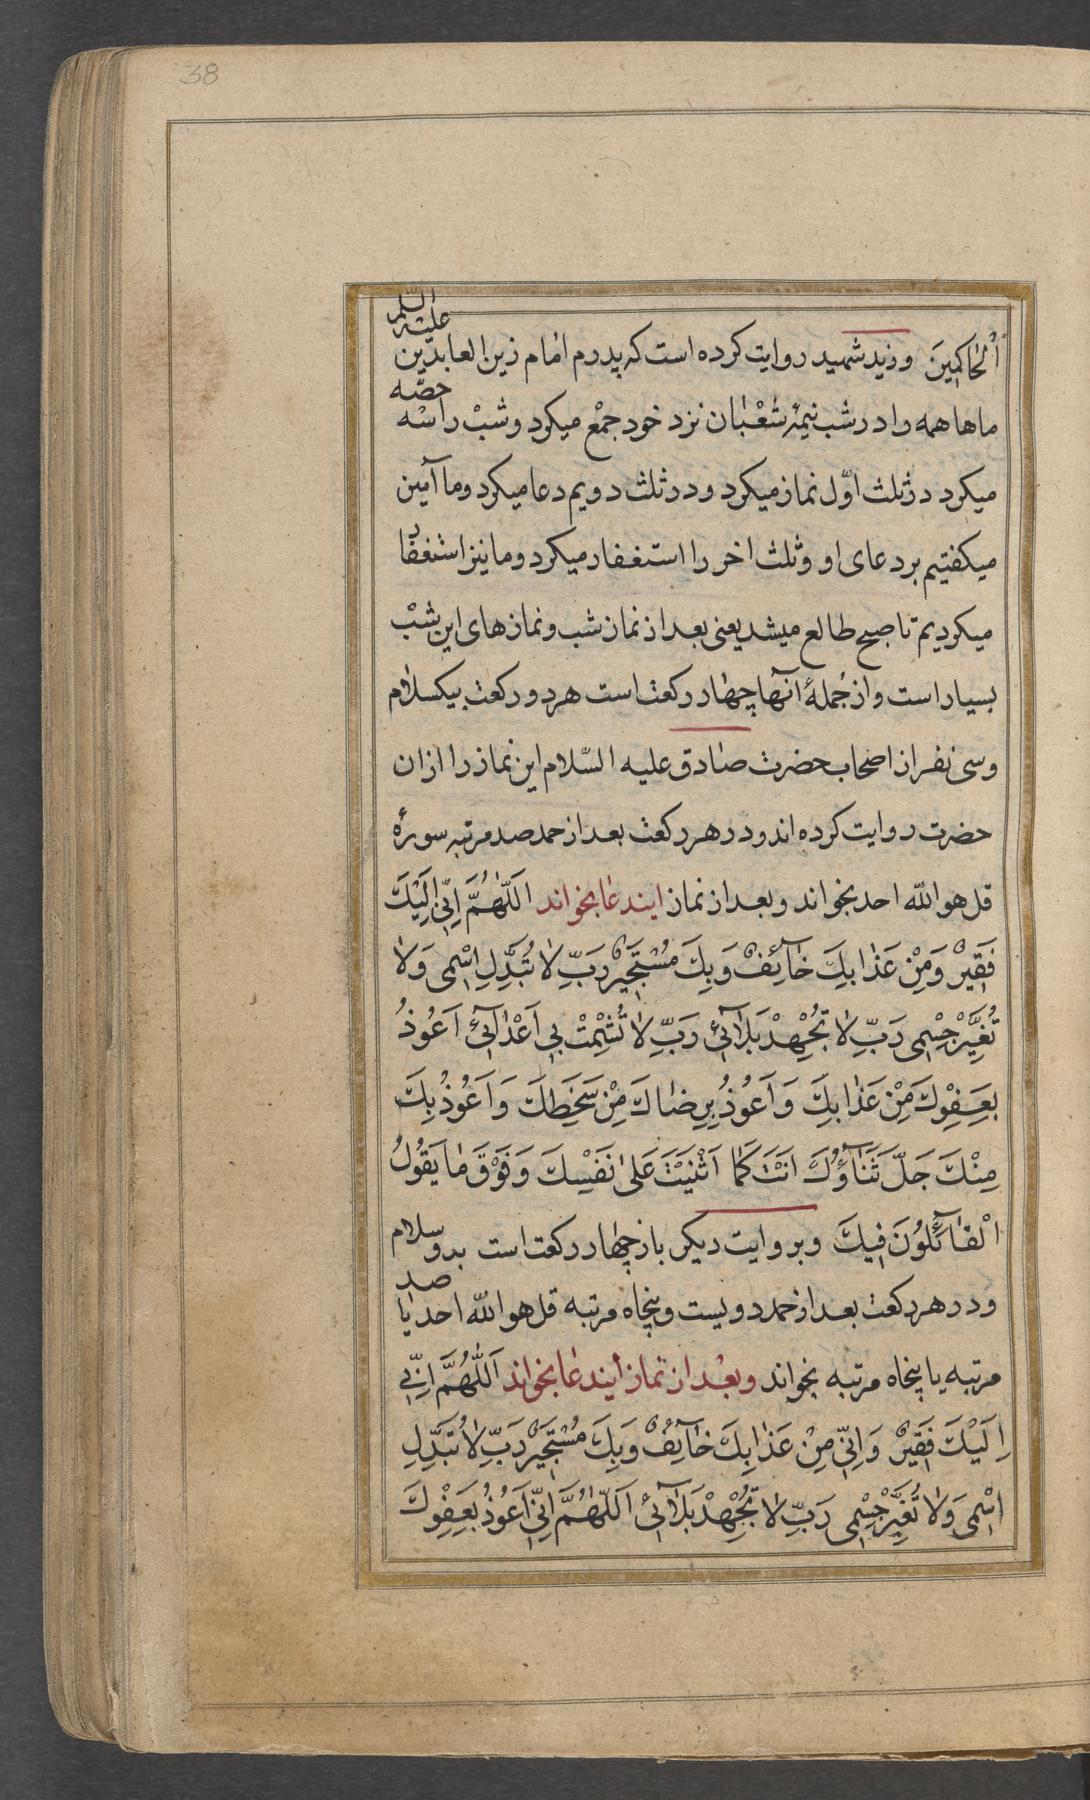 38
اَلْحٰاكِمِينَ وزید شهید روایت کرده است که پدرم امام زین العابدین علیه السّلم
ماها همه را در شب نیمهٔ شَعْبٰان نزد خود جمْع میکرد و شبْ را سْه حصّه
میکرد در ثلث اوّل نماز میکرد و در ثلث دویم دعا میکرد و ما آمین
میکفتیم بر دعای او و ثلث اخر را استغفار میکرد و ما نیز استغفار
میکردیم تا صبح طالع میشد یعنی بعد از نماز شب و نمازهای این شبْ
بسیار است و از جُملهٔ آنها چهٰار رکعت است هر دو رکعت بیکسلام
و سی نفر از اصحاب حضرت صٰادق علیه السّلام این نماز را از ان
حضرت روایت کرده اند و در هر رکعت بعد از حمد صد مرتبه سورهٔ
قل هو اللّه احد بخواند و بعد از نماز ایندعٰا بخواند اَللّٰهُمَّ اِنّي اِلَيْكَ
فَقِيرٌ وَمِنْ عَذٰابِكَ خٰآئِفٌ وَبِكَ مُسْتَجيرٌ رَبِّ لاٰ تُبَدِّلِ اسْمى وَلاٰ
تُغَيِّرْ جِسْمى رَبِّ لاٰ تُجْهِدْ بَلاٰئي رَبِّ لاٰ تُشْمِتْ بي اَعْدٰآئي اَعُوذُ
بِعَفْوِكَ مِنْ عَذٰابِكَ وَاَعُوذُ بِرِضٰاكَ مِنْ سَخَطِكَ وَاَعُوذُ بِكَ
مِنْكَ جَلَّ ثَنَآؤُكَ اَنْتَ كَمٰا اَثْنَيْتَ عَلىٰ نَفْسِكَ وَفَوْقَ مٰا يَقُولُ
الْقٰآئِلُونَ فِيكَ و بر وایت دیکر باز چهٰار رکعت است بدو سلام
و در هر رکعت بعد از حمد دویست و پنجاه مرتبه قل هو اللّه احد یا صد
مرتبه یا پنجاه مرتبه بخواند وبعْد از نماز ایندعٰا بخواند اَللّٰهُمَّ اِنّي
اِلَيْكَ فَقيرٌ وَاِنّي مِنْ عَذٰابِكَ خٰآئِفٌ وَبِكَ مُسْتَجيرٌ رَبِّ لاٰ تُبَدِّلِ
اسْمى وَلاٰ تُغَيِّرْ جِسْمى رَبِّ لاٰ تُجْهِدْ بَلاٰئي اَللّٰهُمَّ اِنّي اَعُوذُ بِعَفْوِكَ